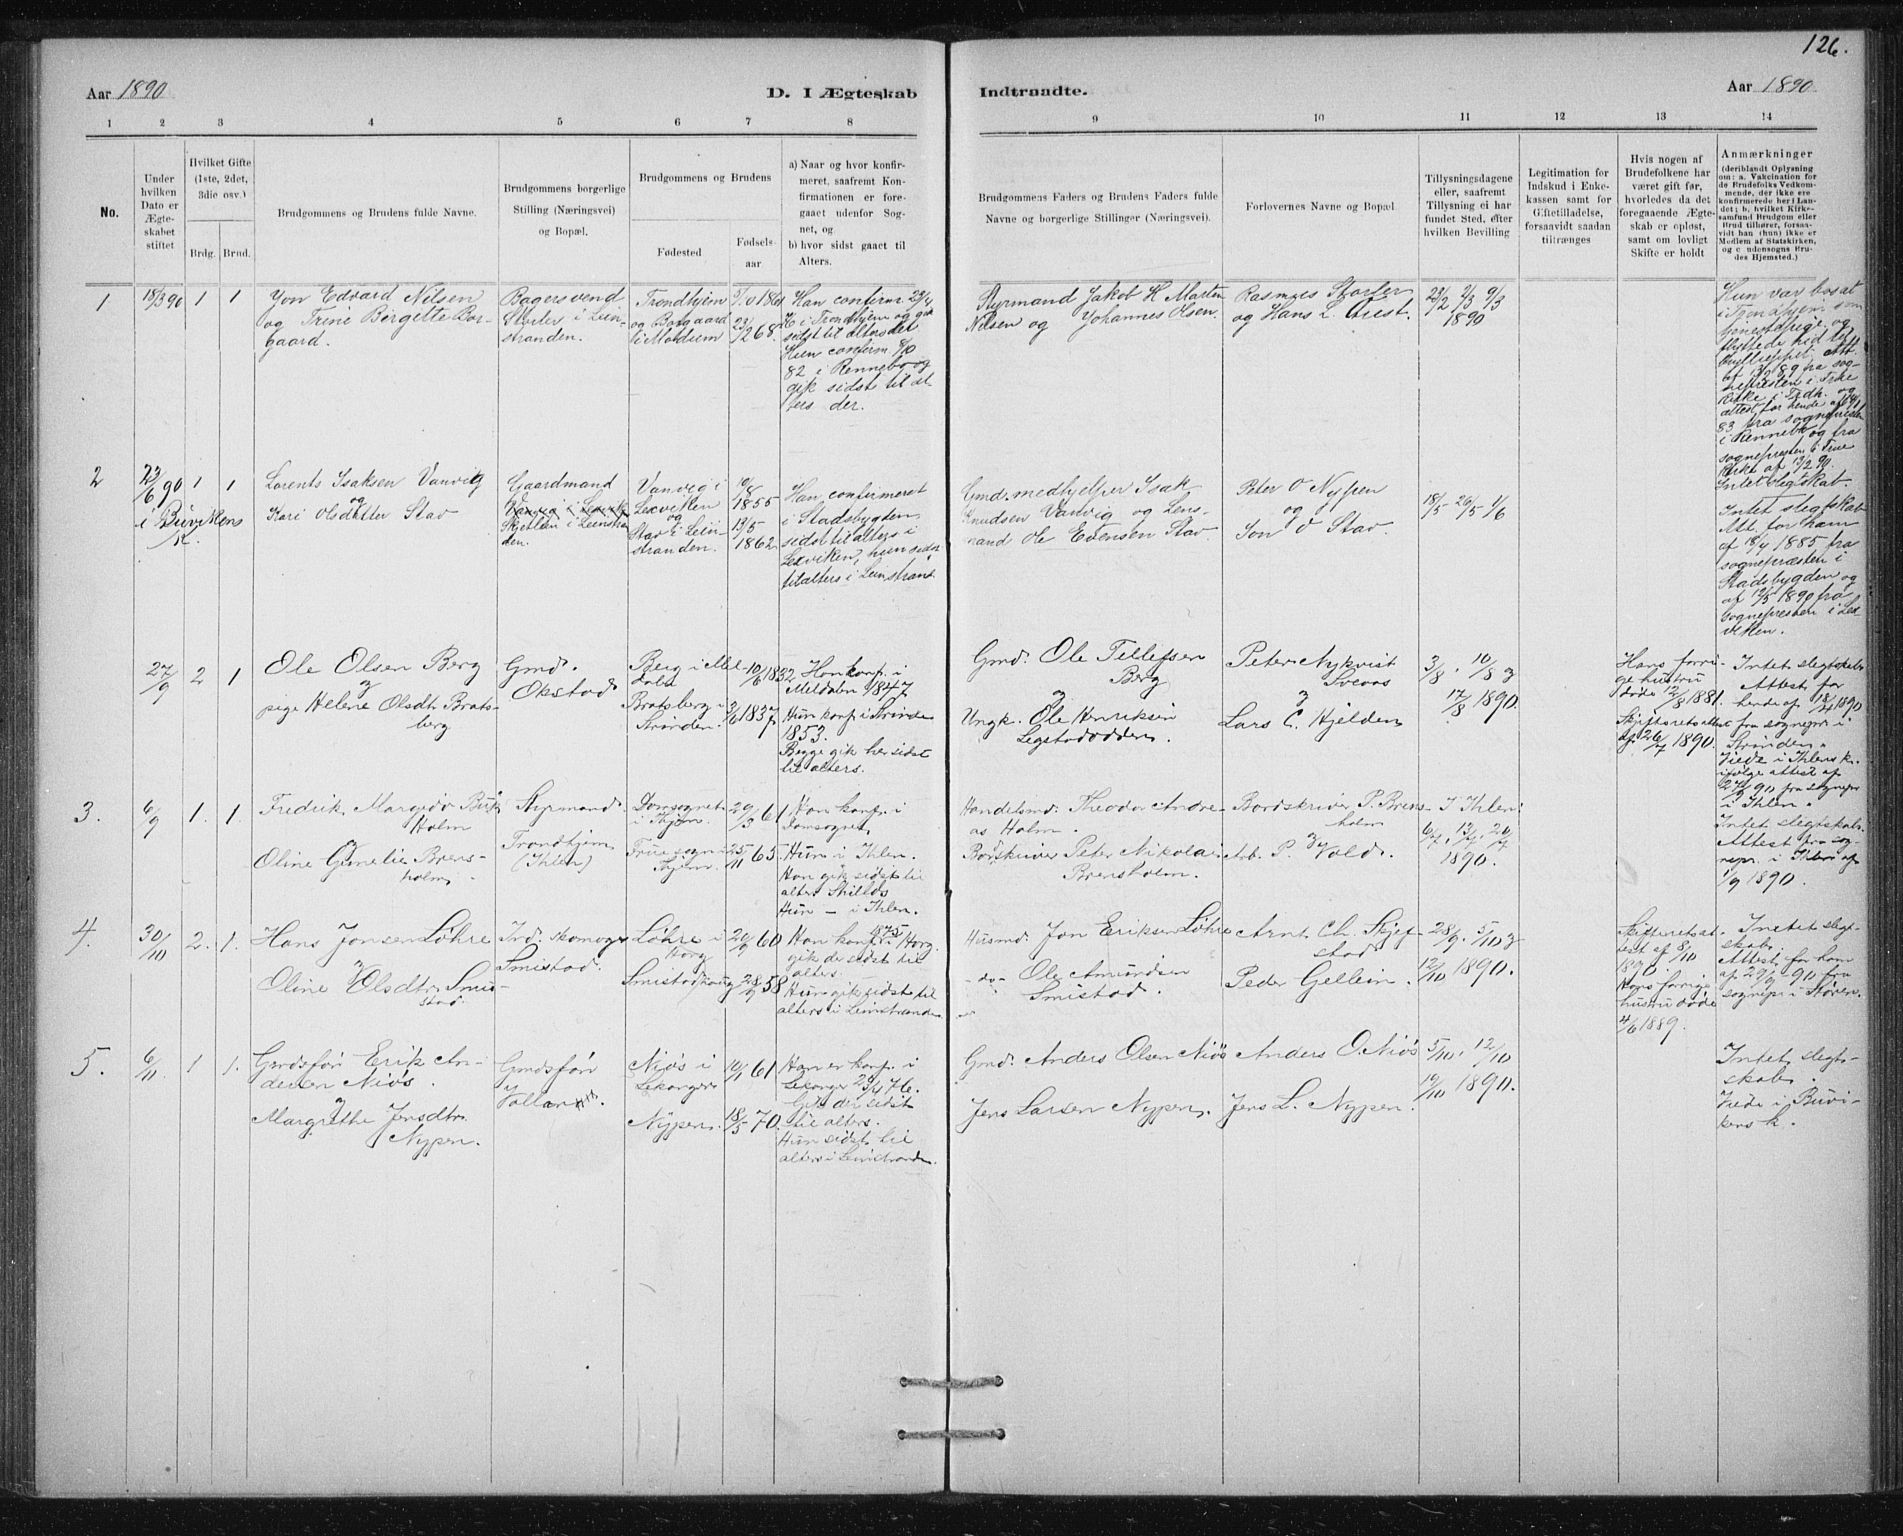 126.
Aar 1890
D. I Ægteskab
Indtraadte.
Aar 1890
1 2 3 4 5 6 7 8 9 10 11 12 13 14
No.
Under
hvilken
Dato er
Ægte-
skabet
stiftet
Hvilket Gifte
(1ste, 2det,
3die osv.)
Brdg. Brud.
Brudgommens og Brudens fulde Navne.
Brudgommens borgerlige
Stilling (Næringsvei)
og Bopæl.
Brudgommens og Brudens
Fødested
Fødsels-
aar
a) Naar og hvor konfir-
meret, saafremt Kon-
firmationen er fore-
gaaet udenfor Sog-
net, og
b) hvor sidst gaaet til
Alters.
Brudgommens Faders og Brudens Faders fulde
Navne og borgerlige Stillinger (Næringsvei).
Forlovernes Navne og Bopæl.
Tillysningsdagene
eller, saafremt
Tillysning ei har
fundet Sted, efter
hvilken Bevilling
Legitimation for
Indskud i Enke-
kassen samt for
Giftetilladelse,
forsaavidt saadan
tiltrænges
Hvis nogen af
Brudefolkene har
været gift før,
hvorledes da det
foregaaende Ægte-
skab er opløst,
samt om lovligt
Skifte er holdt
Anmærkninger
(deriblandt Oplysning
om: a. Vakcination for
de Brudefolks Vedkom-
mende, der ikke ere
konfirmerede her i Lan-
det; b. hvilket Kirke-
samfund Brudgom eller
Brud tilhører, forsaa-
vidt han (hun) ikke er
Medlem af Statskirken,
og c. udensogns Bru-
des Hjemsted.)
1
18/3 90
1 1
Jon Edvard Nilsen
og Trine Bergette Bor-
gaard.
Bagersvend
Storler i Lein-
stranden.
Trondhjem
og Borgaard
i
23/2 68
Han confirm. 29/4
i Trondhjem og gik
sidst til alters det
Hun confirm.
82 i Rennebo og
gik sidst til al-
ters der.
Styrmand Jakob H Marten
Nilsen og Johannes Olsen.
Rasmus Storler
og Hans L.
23/2 2/3 9/3
1890
Hun var bosat
i Trondhjem som
tjenestepige og
flyttede hid til
brylluppet. Att-
est 13/2 89 fra sog-
nepresten i Frue
Kirke i Trdh. og
attest for hende af
83 fra sognepresten
i Rennebo og fra
sognepresten i Frue
Kirke af 13/2 90.
Intet slegtskab.
2
23/6 90
i Buvikens
k.
1 1
Lorents Isaksen Vanvig
og
Kari Olsdatter Stav
Gaardmand
Skjetlein i Leinstran-
den.
Vanvig i
Lexviken
og
Stav i Lein-
stranden.
1855
13/5
1862
Han confirmeret
i Stadsbygden,
sidst til alters i
Lexviken, hun sidst
til alters i Leinstrand
Gmd. medhjelper Isak
Knudsen Vanvig og Lens-
mand Ole Evensen Stav.
Peter O Nypen
og
Jon O Stav.
18/5 26/5 1/6
Intet slegtskab
Att. for ham
af 18/4 1885 fra
sognepræsten i
Stadsbygden og
af 12/5 1890 fra
sognepresten i Lex-
viken.
27/9
2 1
Ole Olsen Berg
og
pige Helene Olsdt Brats-
berg
Gmd.
Okstad
Berg i Mel-
dal
Bratsberg i
Strinden.
10/6 1832
3/6 1837
Han konf. i
Meldalen 1847
Hun konf. i Strinde
1853.
Begge gik her sidst
til alters.
Gmd. Ole Tillefsen
Berg
og
Ungk. Ole Henriksen
Legstadodden.
Peter Nykvist
Sveaas
og
Lars C. Hjelden
3/8. 10/8 og
17/8 1890.
Hans forri-
ge hustru
døde 12/8 1881.
Skifteretsattest
af 26/7 1890.
Intet slegtskab
Attest for
hende af 18/7 1890
fra sognepr. i
Strinden.
Viede i Ihlens k.
ifølge attest af
27/9 90 fra sognepr.
i Ihlen.
3.
6/9
1. 1.
Fredrik Margido Buk
Holm
og
Oline Gimelie Brens-
holm
Styrmand
Trondhjem
(Ihlen)
Domsognet
i Thjem.
Frue sogn i
Thjem.
29/3 61
25/11 65.
Han konf. i
Domsognet
Hun i Ihlen.
Han gik sidst til
alters Shilds
Hun — i Ihlen.
Handelsmd. Theodor Andre-
as Holm.
Bordskriver Peter Nikolai
Brensholm.
Bordskriver P. Brens-
holm
og
Arb. P. Vold.
I Ihlen:
6/7. 13/7. 20/7
1890.
Intet slegtskab.
Attest fra sog-
nepr. i Ihlen af
1/9 1890.
4.
30/10
2. 1.
Hans Jonsen Løhre
og
Oline Olsdtr. Smi-
stad.
Ind. skomager
Smistad.
Løhre i
Horg
Smistad
20/9 60
28/9 58
Han konf. 1875 i Horg
gik der sidst til
alters.
Hun gik sidst til
alters i Leinstranden
Husmd. Jon Eriksen Løhre
-do- Ole Amundsen
Smistad.
Arnt Ch. Skjef-
stad
Peder Gellein.
28/9. 5/10 og
12/10 1890.
Skifteretsat-
test af 8/10
1890.
Hans forrige
hustru døde
4/6 1889.
Intet slegt-
skab.
Attest for ham
af 29/9 -90 fra
sognepr. i Støren.
5.
6/11
1 1.
Gmdsfør Erik An-
dersen Niøs.
og
Margrethe Jensdtr.
Nypen.
Gmdsfør
Niøs i
Lekanger
Nypen.
10/1 61
18/5 70.
Han er konf. i
Lekanger 23/4 76.
Gik der sidst
til alters.
Hun sidst til
alters i Leinstranden.
Gmd. Anders Olsen Niøs
Jens Larsen Nypen.
Anders O. Niøs
Jens L. Nypen.
5/10. 12/10
19/10 1890.
Intet slegt-
skab.
Viede i Buvi-
kens k.